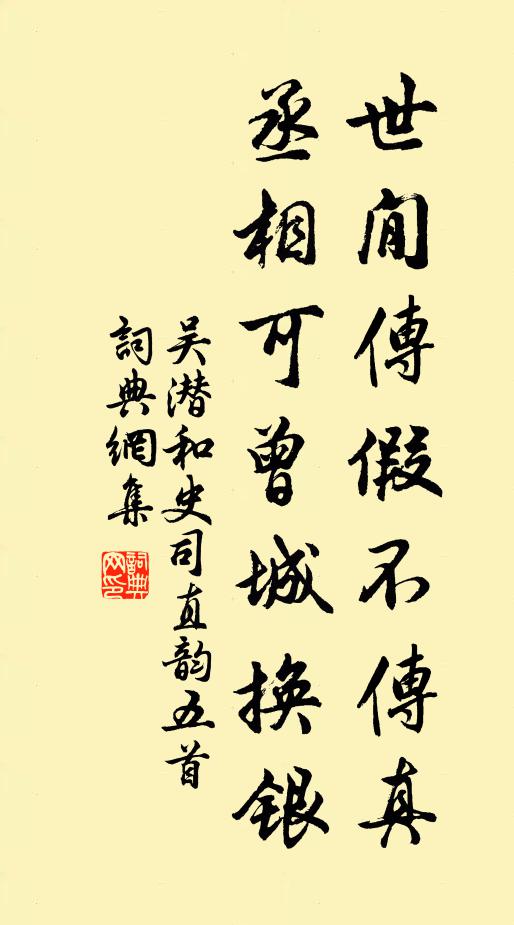 世間傳假不傳真
丞相可曾城換銀
吴潜和史司直韵五首
詞典網集
詞典
网印